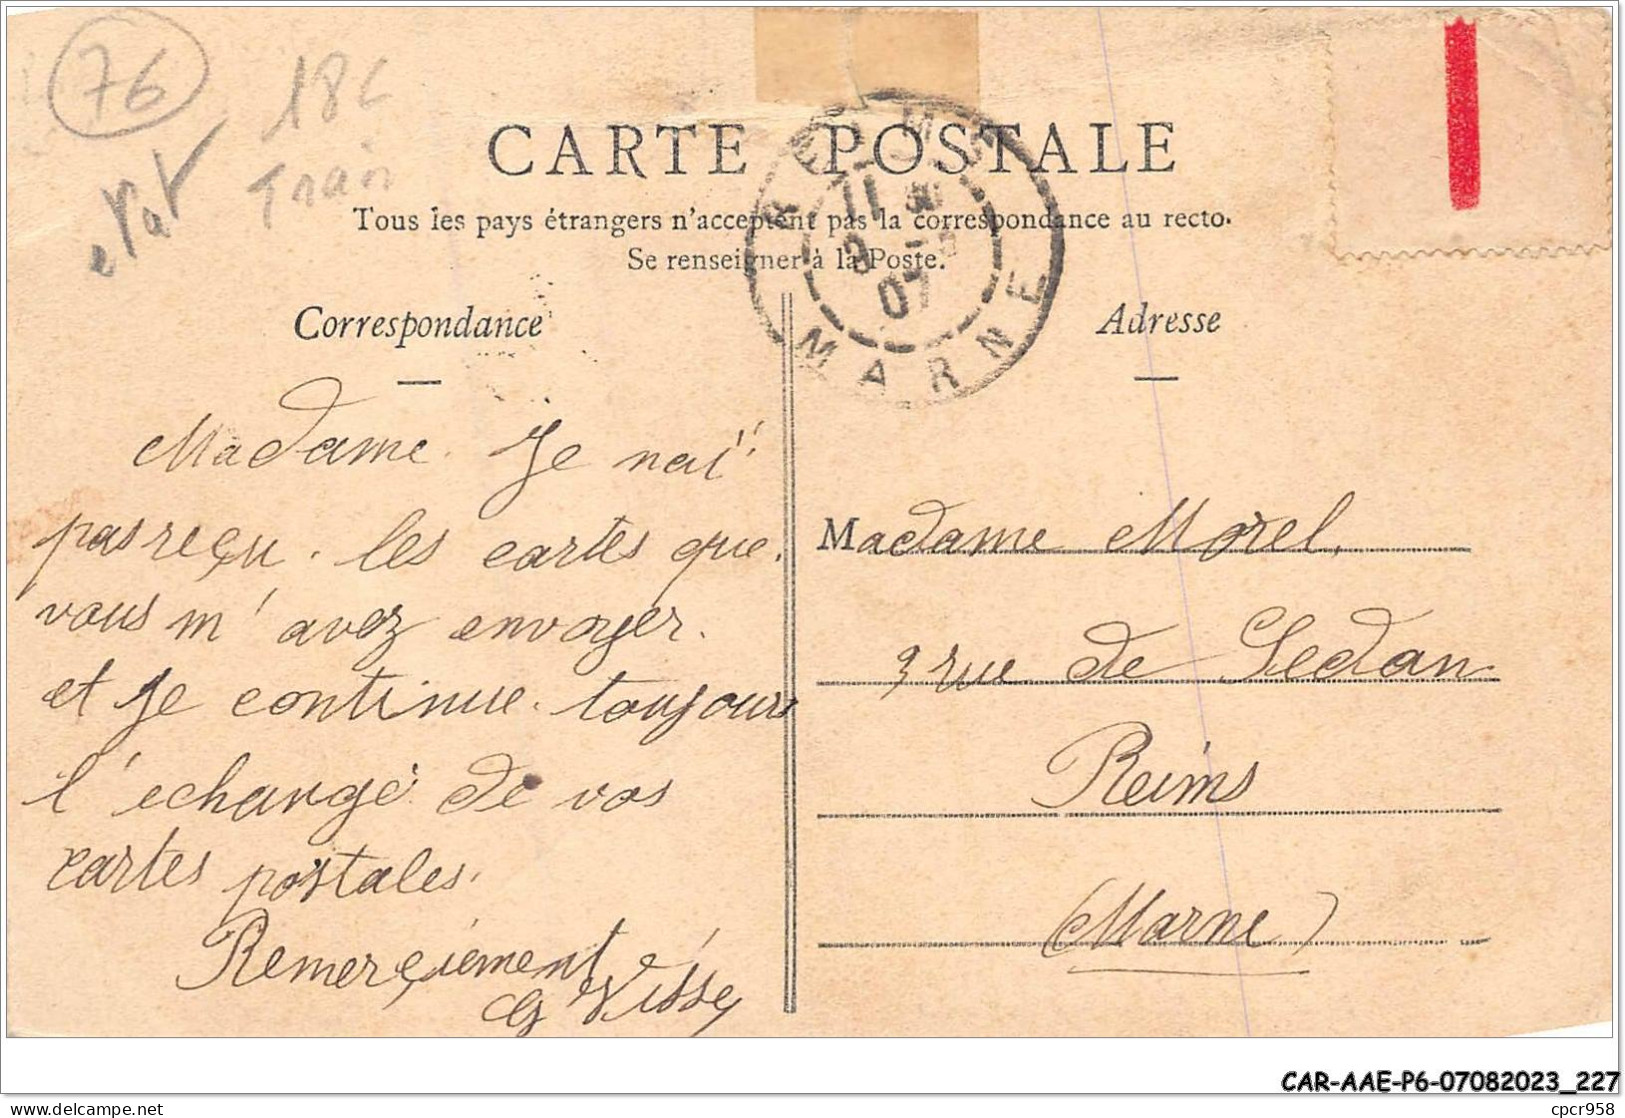 76
18c
Train
état
CARTE POSTALE
Tous les pays étrangers n'acceptent pas la correspondance au recto.
Se renseigner à la Poste.
REIMS
11
07
MARNE
Correspondance
Adresse
Madame. Je naï
pas reçu. les cartes que.
vous m'avez envoyer.
et je continue. toujours
l'échange de vos
cartes postales.
Remerçiement
G Visse
Madame Morel,
9 rue de Sedan
Reims
(Marne)
CAR-AAE-P6-07082023_227
cpcr958